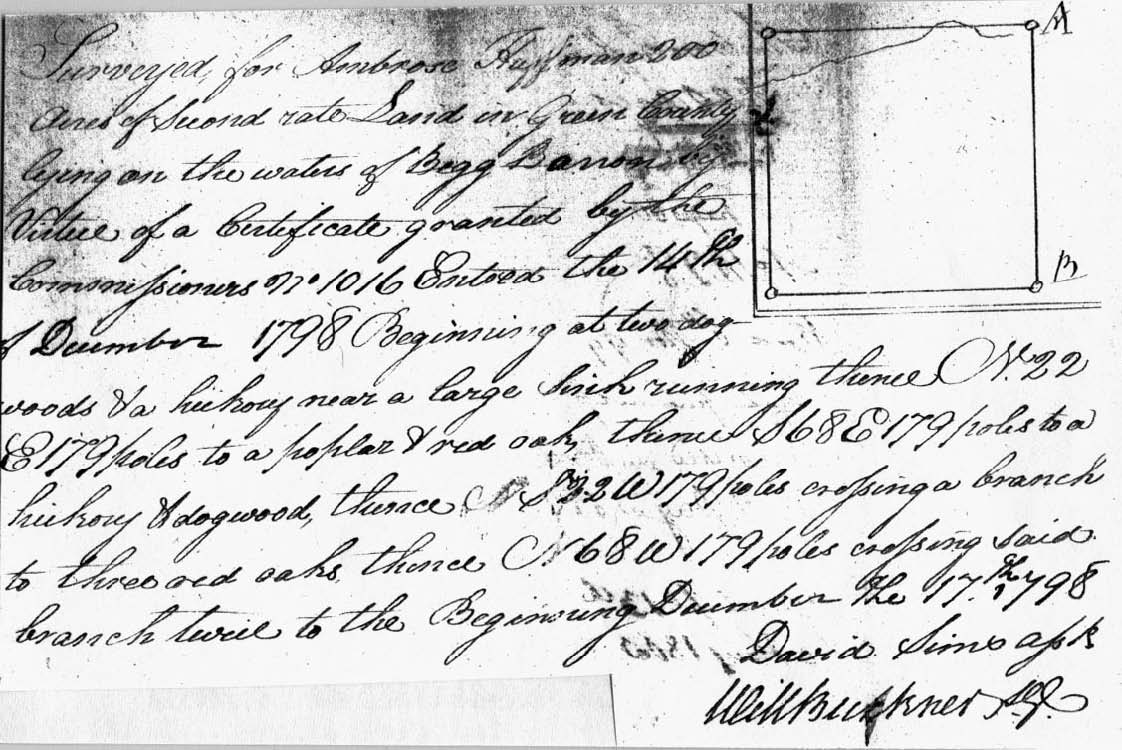 Surveyed for Ambrose Huffman 200
acres of Second rate Land in Green County
lying on the waters of Begg Barron by
Virtue of a Certificate granted by the
Commissioners No 1016 Entered the 14th
of December 1798 Beginning at two dog-
woods & a hickory near a large Sink running thence N 22
E 179 poles to a poplar & red oak, thence S 68 E 179 poles to a
hickory & dogwood, thence S 22 W 179 poles crossing a branch
to three red oaks thence N 68 W 179 poles crossing said
branch twice to the Beginning December the 17th 1798
David Sims asst
Will Buckner
A
B